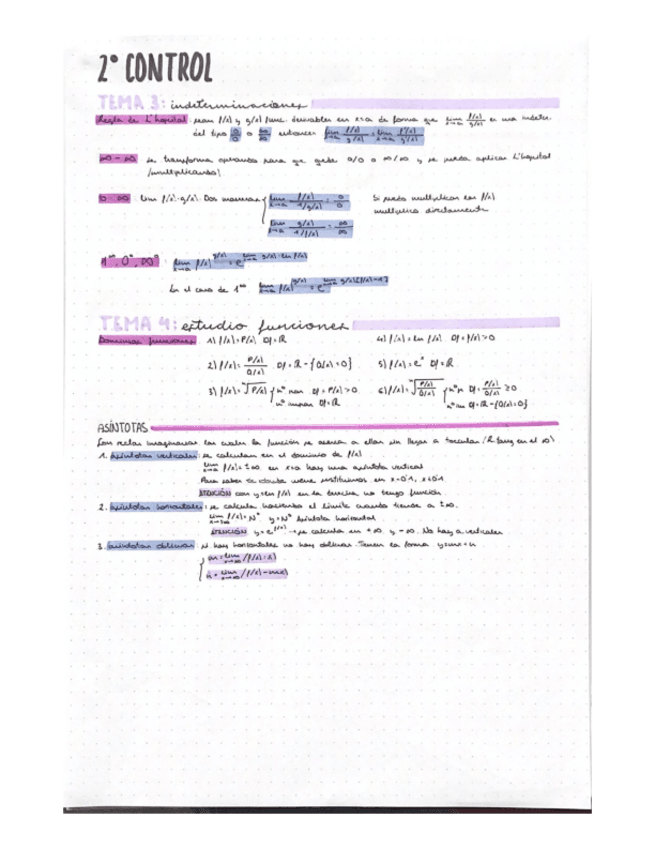 2º CONTROL
TEMA 3: indeterminaciones
Regla de L'hopital: sean f(x) y g(x) func. derivables en x=a de forma que lim x→a f(x)/g(x) es una indeter.
del tipo 0/0 o ∞/∞ entonces lim x→a f(x)/g(x) = lim x→a f'(x)/g'(x)
∞-∞ se transforma operando para que quede 0/0 o ∞/∞ y se pueda aplicar L'hopital
(multiplicando)
0·∞: lim f(x)·g(x). Dos maneras { lim x→a f(x)/1/g(x) = 0/0 Si puedo multiplicar las f(x)
multiplico directamente
lim x→a g(x)/1/f(x) = ∞/∞
1^∞, 0^0, ∞^0: lim x→a f(x)^g(x) = e^lim x→a g(x)·ln f(x)
En el caso de 1^∞ lim x→a f(x)^g(x) = e^lim x→a g(x)[f(x)-1]
TEMA 4: estudio funciones
Dominios funciones 1) f(x)=P(x) Df=ℝ 4) f(x)=ln f(x) Df=f(x)>0
2) f(x)=P(x)/Q(x) Df=ℝ-{Q(x)=0} 5) f(x)=e^x Df=ℝ
3) f(x)=ⁿ√P(x) { nº par Df=P(x)>0 6) f(x)=ⁿ√P(x)/Q(x) { nº p Df=P(x)/Q(x) ≥0
nº impar Df=ℝ nº im Df=ℝ-{Q(x)=0}
ASÍNTOTAS
Son rectas imaginarias las cuales la función se acerca a ellas sin llegar a tocarlas en el ∞)
1. Asíntotas verticales: se calculan en el dominio de f(x)
lim x→a f(x)=±∞ en x=a hay una asíntota vertical
Para saber de donde viene sustituimos en
ATENCIÓN con y=ln f(x) en la derecha no tengo función.
2. Asíntotas horizontales: se calcula haciendo el límite cuando tiende a ±∞.
lim x→±∞ f(x)=Nº y=Nº Asíntota horizontal
ATENCIÓN y=e^f(x) → se calcula en +∞ y -∞. No hay a. verticales
3. Asíntotas oblicuas: si hay horizontales no hay oblicuas. Tienen la forma y=mx+n
{ m=lim x→∞ (f(x):x)
n=lim x→∞ (f(x)-mx)